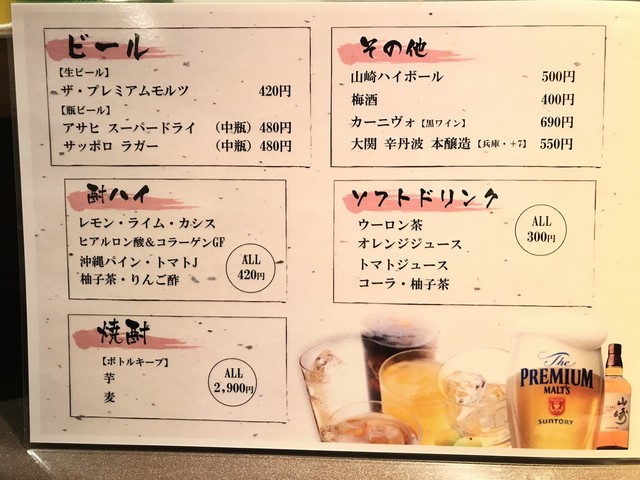 ビール
【生ビール】
ザ・プレミアムモルツ 420円
【瓶ビール】
アサヒ スーパードライ (中瓶) 480円
サッポロ ラガー (中瓶) 480円
酎ハイ
レモン・ライム・カシス
ヒアルロン酸&コラーゲンGF
沖縄パイン・トマトJ
柚子茶・りんご酢
ALL
420円
焼酎
【ボトルキープ】
芋
麦
ALL
2,900円
その他
山崎ハイボール 500円
梅酒 400円
カーニヴォ【黒ワイン】 690円
大関 辛丹波 本醸造【兵庫・+7】 550円
ソフトドリンク
ウーロン茶
オレンジジュース
トマトジュース
コーラ・柚子茶
ALL
300円
The
PREMIUM
MALT'S
SUNTORY
山崎